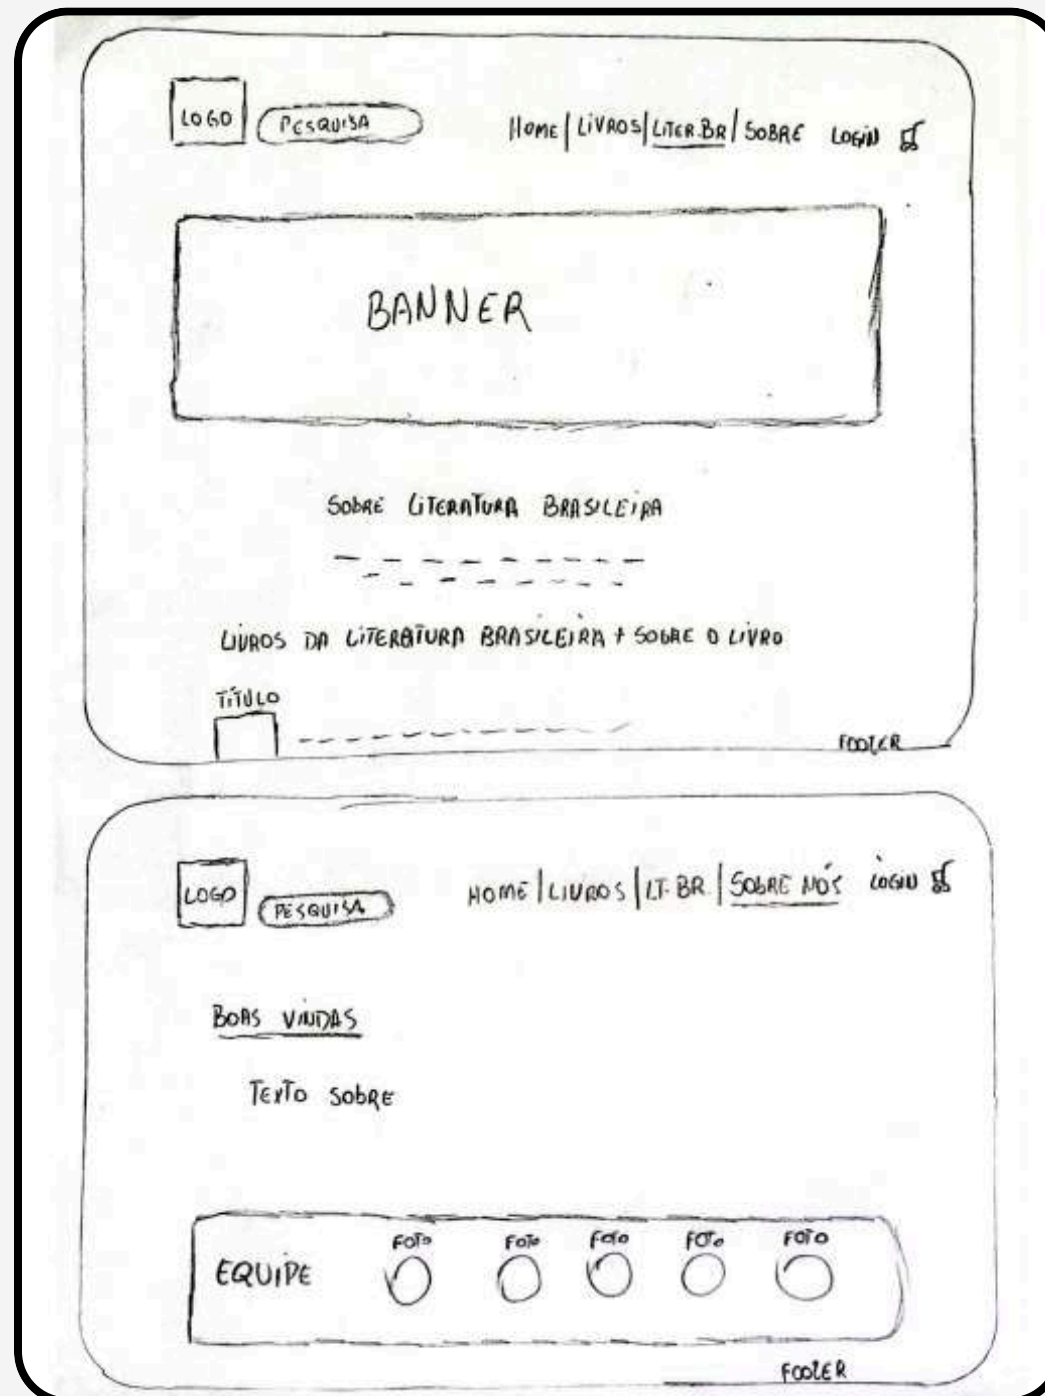 LOGO
PESQUISA
HOME | LIVROS | LITER.BR | SOBRE LOGIN
BANNER
SOBRE LITERATURA BRASILEIRA
LIVROS DA LITERATURA BRASILEIRA + SOBRE O LIVRO
TÍTULO
FOOTER
LOGO
PESQUISA
HOME | LIVROS | LT. BR. | SOBRE NÓS LOGIN
BOAS VINDAS
TEXTO SOBRE
EQUIPE
FOTO FOTO FOTO FOTO FOTO
FOOTER